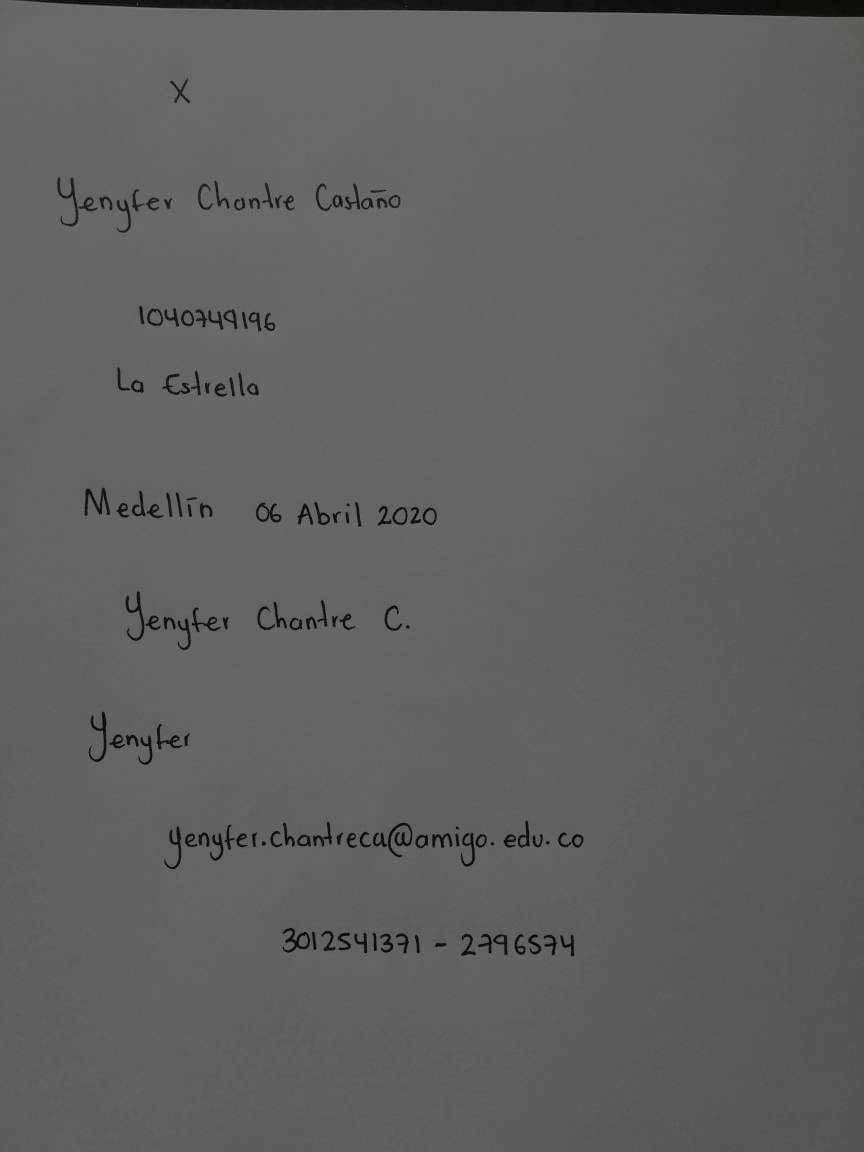 X
Yenyfer Chantre Castaño
1040749196
La Estrella
Medellín 06 Abril 2020
Yenyfer Chantre C.
Yenyfer
yenyfer.chantreca@amigo.edu.co
3012541371 - 2796574